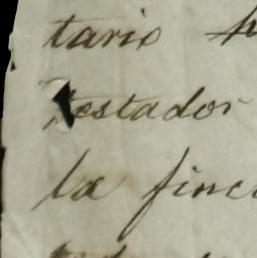 tario
testador
la finc